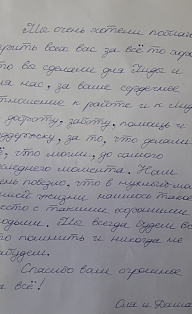 Мы очень хотели поблаго-
всех вас за всё то хоро-
то вы сделали для
нас, за ваше сердечное
отношение к работе и к
доброту, заботу, помощь и
поддержку, за то, что делали
всё, что могли, до самого
последнего момента. Нам
очень повезло, что в нужный мо-
нашей жизни нашлось такое
место с такими хорошими
людьми. Мы всегда будем
помнить и никогда не
забудем.
Спасибо вам огромное
за всё!
Оля и Даша